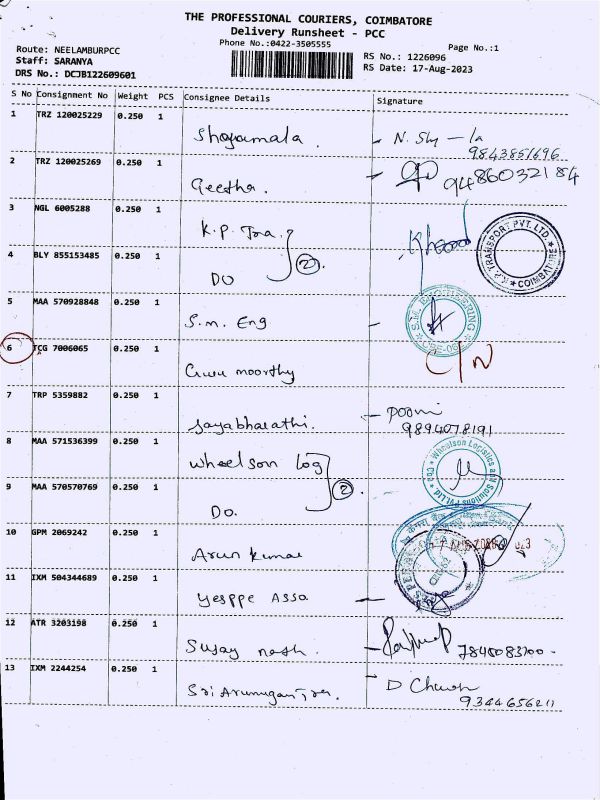 THE PROFESSIONAL COURIERS, COIMBATORE
Delivery Runsheet - PCC
Phone No.:0422-3505555
Page No.:1
Route: NEELAMBURPCC
Staff: SARANYA
DRS No.: DCJB122609601
RS No.: 1226096
RS Date: 17-Aug-2023
S No Consignment No Weight PCS Consignee Details Signature
1 TRZ 120025229 0.250 1 Shyamala
9843851696
2 TRZ 120025269 0.250 1 Geetha. 9486032184
3 NGL 6005288 0.250 1 K.P. Tra.
K.P. TRANSPORT PVT. LTD. * COIMBATORE *
4 BLY 855153485 0.250 1 DO (2)
5 MAA 570928848 0.250 1 S.m. Eng
S.M. ENGINEERING
6 TCG 7006065 0.250 1 Guru moorthy C/N
7 TRP 5359882 0.250 1 Jayabharathi. Pooni
9894078191
8 MAA 571536399 0.250 1 Wheelson Log
Wheelson Logistics and Solutions Pvt Ltd
9 MAA 570570769 0.250 1 DO. (2)
10 GPM 2069242 0.250 1 Arun Kumar
11 IXM 504344689 0.250 1 Yesppe Asso
12 ATR 3203198 0.250 1 Sujay 7845083700
13 IXM 2244254 0.250 1 Sri Arumugan Tra.
9344656211